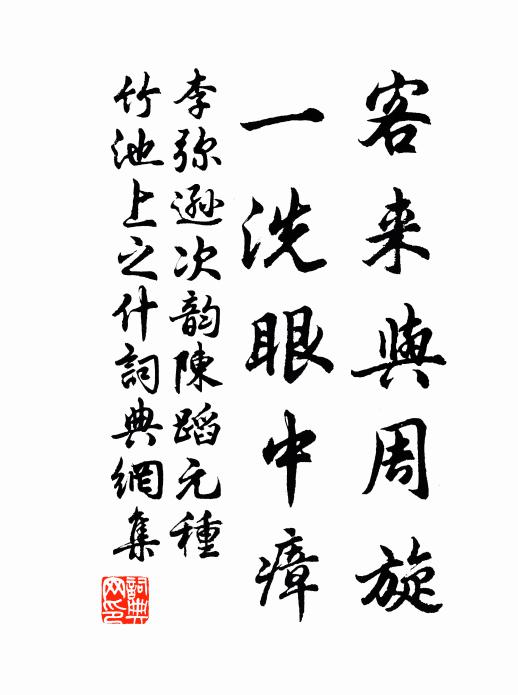 客来與周旋
一洗眼中瘴
李弥遜次韵陳蹈元種
竹池上之什詞典網集
詞典網印